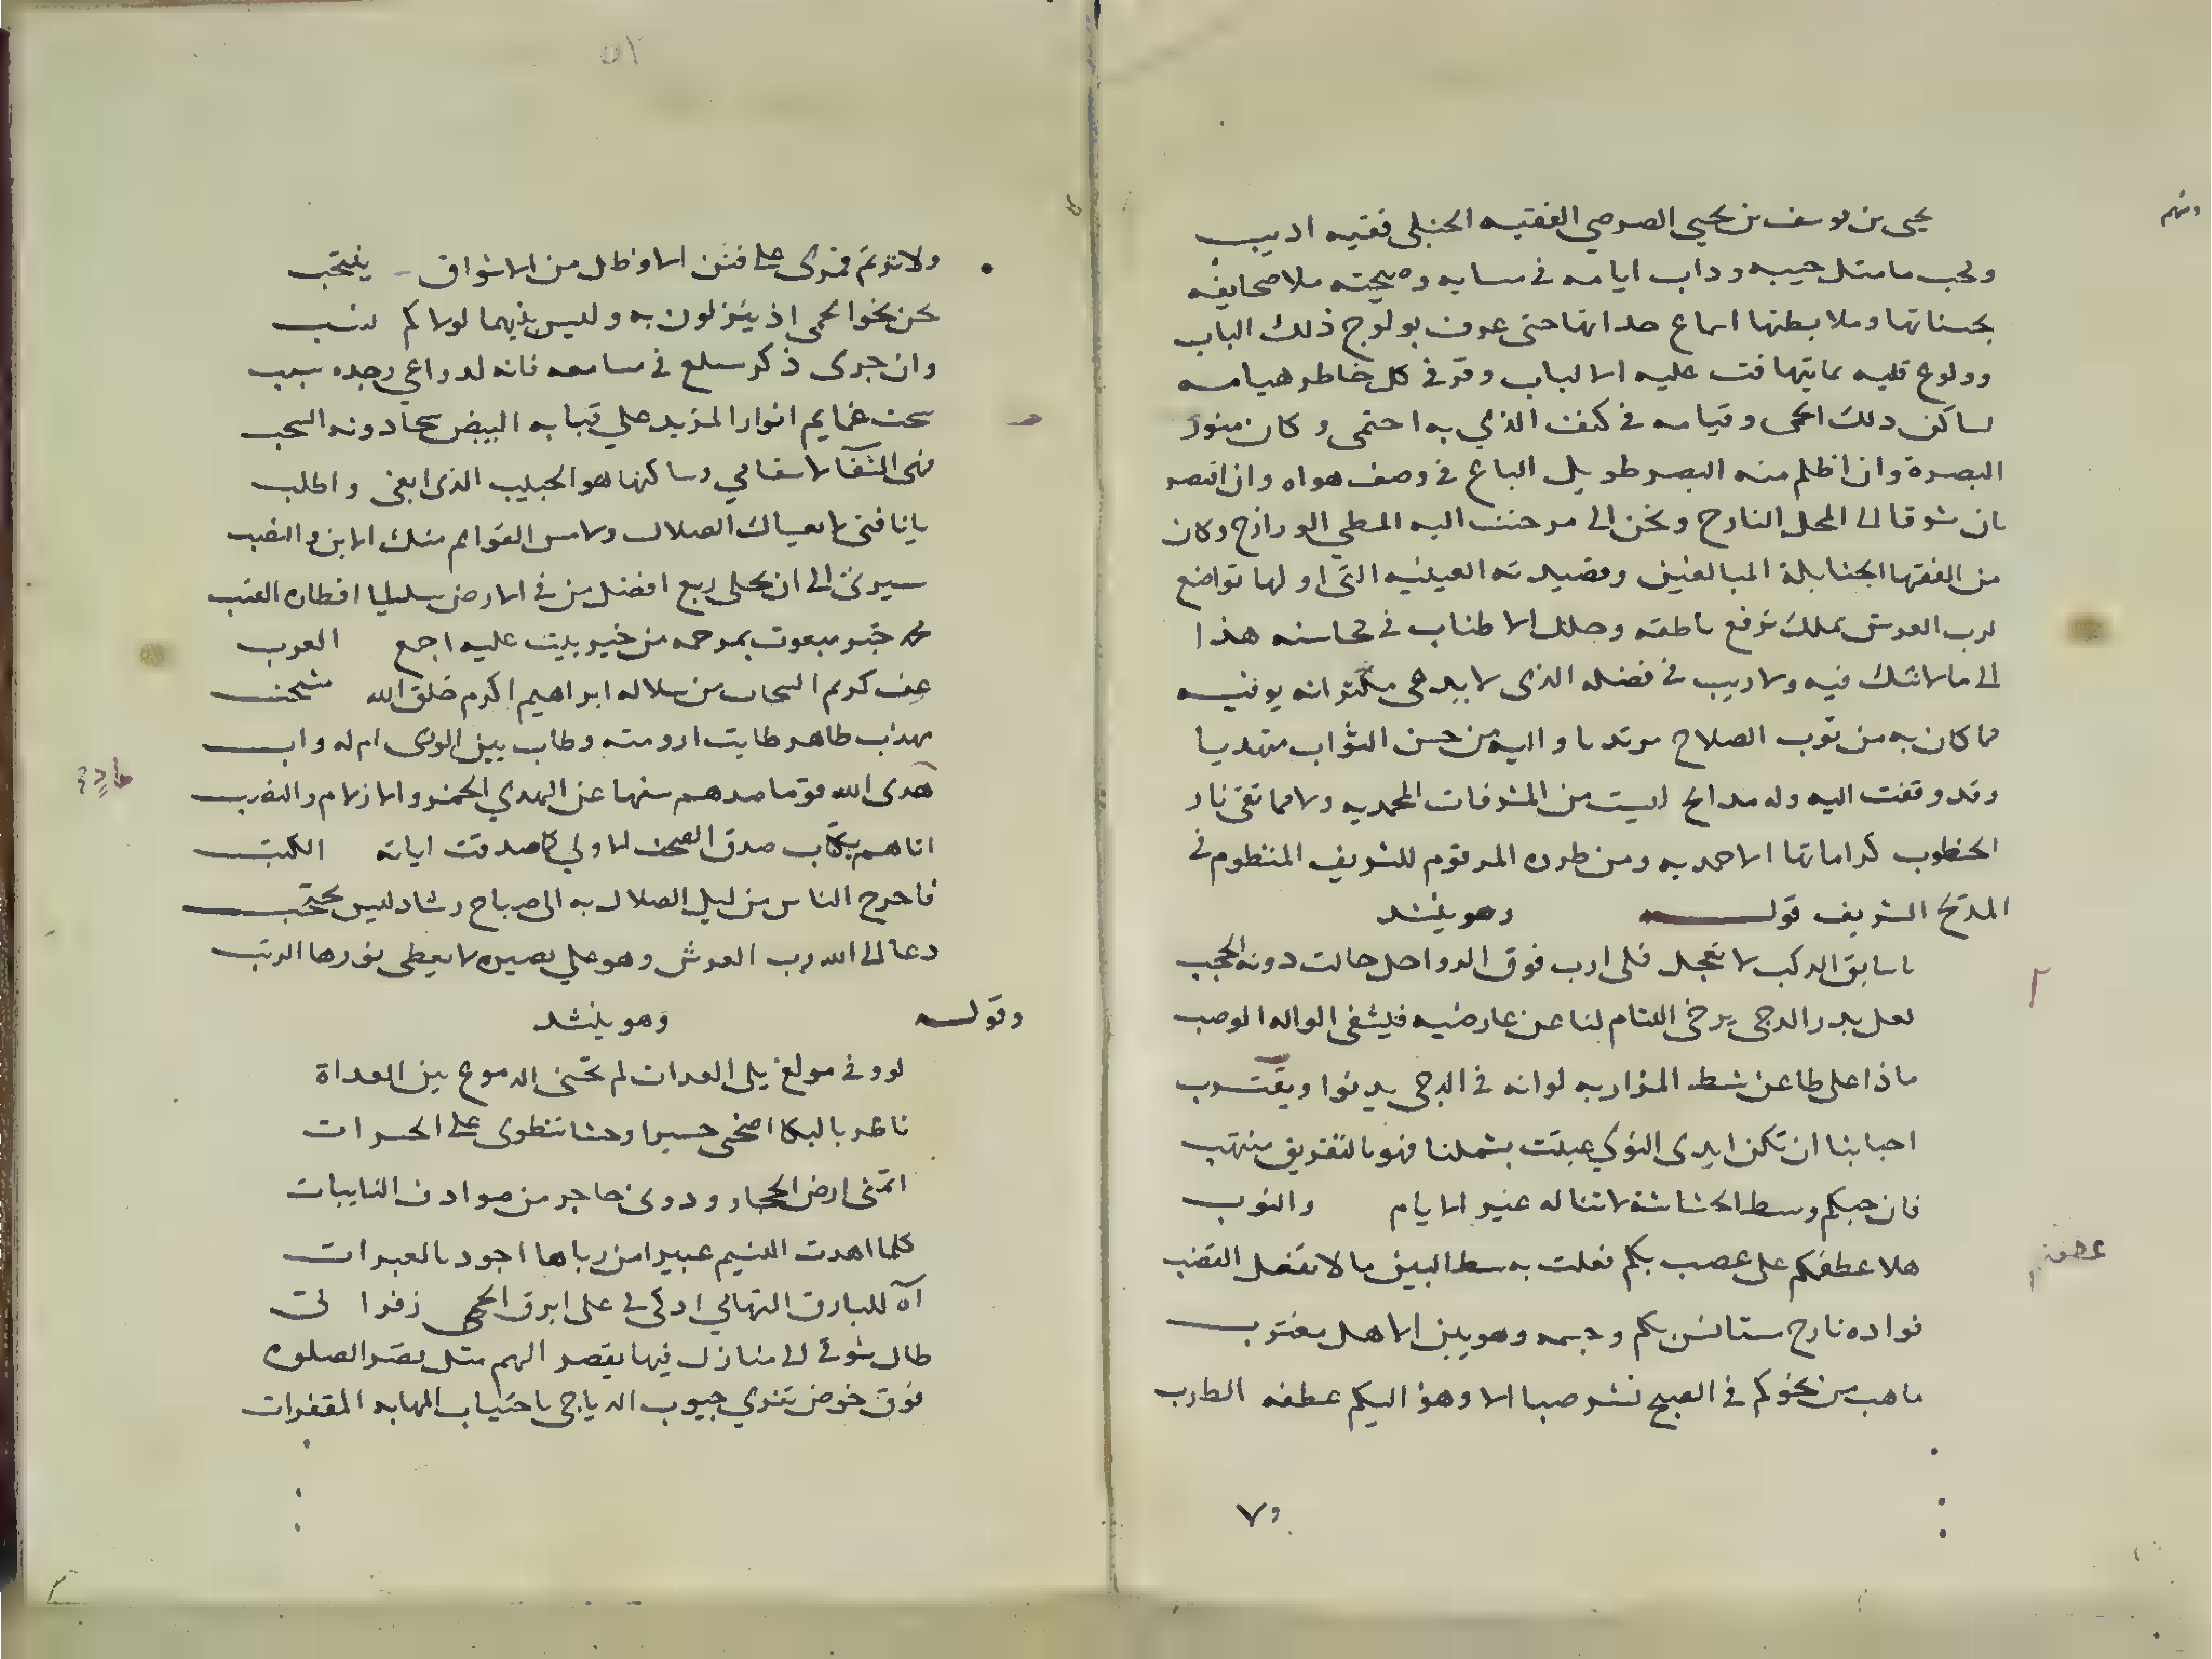 ومنهم
يحيى بن يوسف بن يحيى الصرصري الفقيه الحنبلى فقيه اديب
ومحب ما مثل حبيبه وداب ايامه في ملا صحايفه
بحسناتها وملا بطنها اسماع حداتها حتى عرف بولوج ذلك الباب
وولوع قلبه بما تهافت عليه الالباب وقر في كل خاطر هيامه
لساكن ذلك الحمى وقيامه في كنف الذي به احتمى وكان منور
البصرة وان اظلم منه البصر طويل الباع في وصف هواه وان اقصر
بان شوقا الى المحل النازح ونحن الى من حنت اليه المطي الورازح وكان
من الفقها الحنابلة المبالغين وقصيدته العينيه التى اولها تواضع
لرب العرش علك ترفع ناطقه وحلك الاطناب في محاسنه هذا
الى ما لا شك فيه ولا ريب في فضله الذى لا يدعى مكثر انه يوفيه
مما كان به من ثوب الصلاح مرتديا واليه من حسن الثواب مهتديا
وقد وقفت اليه وله مدايح ليست من المشرفات المحمديه ولا مما تقى نار
الخطوب كراماتها الاحمديه ومن طرره المرقوم للشريف المنظوم في
المديح الشريف قوله وهو ينشد
يا سايق الركب لا تعجل فلى ارب فوق الرواحل حالت دونه الحجب
لعل بدر الدجى يرخى اللثام لنا عن عارضيه فيشفى الواله الوصب
ماذا على ظاعن شط المزار به لو انه في الدجى يدنوا ويقترب
احبابنا ان تكن ايدى النوى عبثت بشملنا فهو بالتفريق منتهب
فان حبكم وسط الحشاشة لا تناله غير الايام والنوب
هلا عطفكم على عصب بكم فعلت به سط البين ما لا تفعل القضب
فواده نازح مستانس بكم وجسمه وهو بين الاهل مغترب
ما هب من نحوكم في الصبح نشر صبا الا وهز اليكم عطفه الطرب
ولا ترنم قمرى على فنن الا وظل من الاشواق ينتحب
يحن نحو الحمى اذ ينزلون به وليس بينهما لولاكم نسب
وان جرى ذكر سلع في مسامعه فانه لدواعي وجده سبب
سحت غمايم انوار المزيد على قبابه البيض سحا دونه السحب
فهى الشفا لاسقامي وساكنها هو الحبيب الذى ابغى واطلب
يا ناقتى لا لعياك الضلال ولا مس القوايم منك الاين والنصب
سيرى الى ان تحلى ربع افضل من في الارض
محمد خير مبعوث بمرحمه من خير بيت عليه اجمع العرب
عف كريم السجايا من سلاله ابراهيم اكرم خلق الله منتخب
مهذب طاهر طابت ارومته وطاب بين الورى ام له واب
هدى الله قوما صدهم سفها عن الهدي الخمر والازلام والنصب
اتاهم بكتاب صدق الصحف الاولى كما صدقت اياته الكتب
فاخرج الناس من ليل الضلال به الى صباح رشاد ليس يحتجب
دعا الى الله رب العرش وهو على بصيره لا يغطى نورها الريب
وقوله وهو ينشد
لو وفى مولع يلى العدات لم تخنى الدموع بين العداة
ناظر بالبكا اضحى حسيرا وحشا تنطوى على الحسرات
اتمنى ارض الحجاز ودونى حاجر من صوادف النايبات
كلما اهدت النسيم عبيرا من رباها اجود بالعبرات
آه للبارق التهامي اذكى لى على ابرق الحمى زفراتى
طال شوقى الى منازل فيها يقصر الهم مثل قصر الصلوه
فوق خوض تفري جيوب الدياجى باجتياب المهامه المقفرات
٧